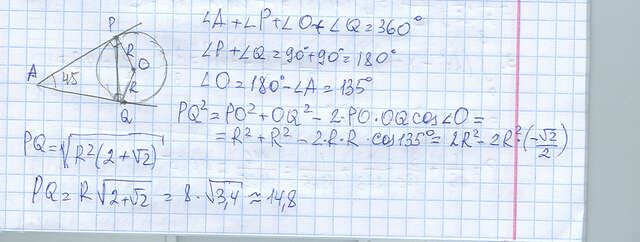 ∠A+∠P+∠O+∠Q=360°
∠P+∠Q=90°+90°=180°
∠O=180°-∠A=135°
PQ²=PO²+OQ²-2·PO·OQ cos∠O=
=R²+R²-2·R·R·cos135°=2R²-2R²·(-√2/2)
PQ=√(R²(2+√2))
PQ=R√(2+√2)=8·√3,4≈14,8
P
R
A
45
O
R
Q